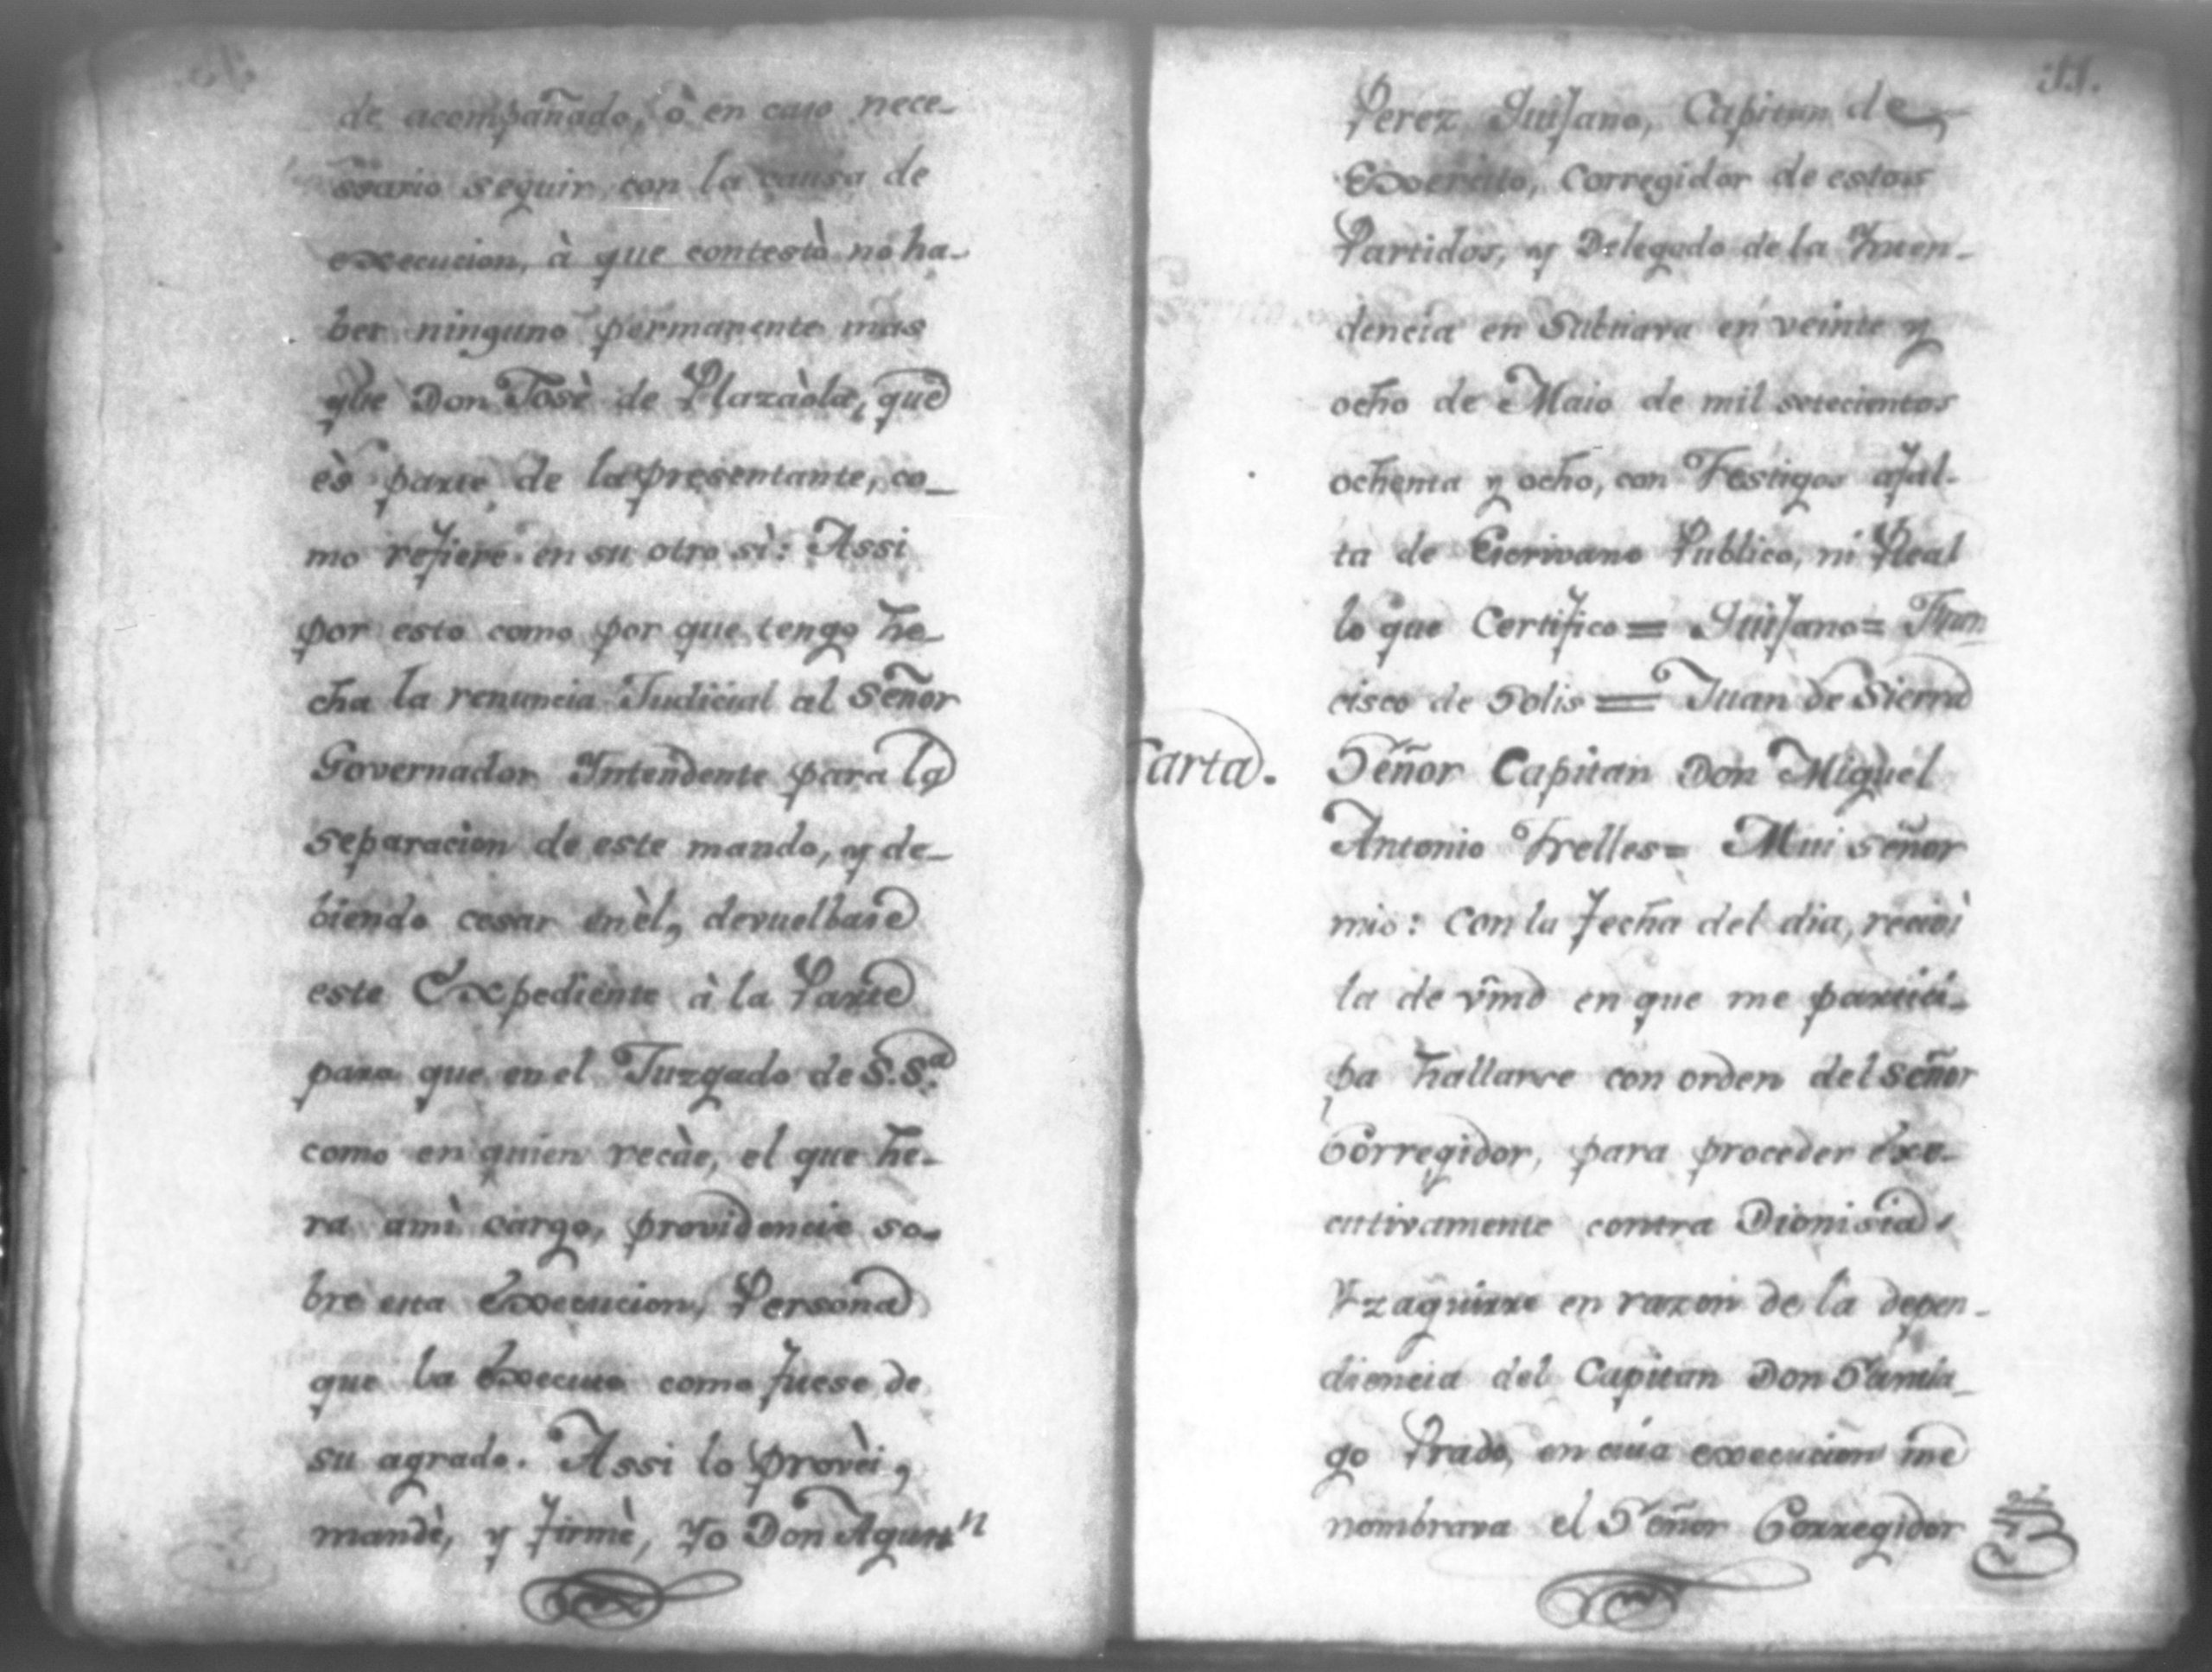 de acompañado, ò en caso nece-
ssario seguir con la causa de
execucion, à que contestò no ha-
ber ninguno permanente mas
que Don Josè de Plazaòla, que
ès parte de la presentante, co-
mo refiere en su otro sì: Assi
por esto como por que tengo he-
cha la renuncia Judicial al Señor
Governador Intendente para la
separacion de este mando, y de-
biendo cesar en èl, devuelbase
este Expediente à la Parte
para que en el Juzgado de S.Sª.
como en quien recàe, el que he-
ra amì cargo, providencie so-
bre esta Execucion, Persona
que la Execute como fuese de
su agrado. Assi lo provèi,
mandè, y firmè, Yo Don Agustⁿ
11.
Perez Quijano, Capitan de
Exercito, Corregidor de estos
Partidos, y Delegado de la Inten-
dencia en Subtiava en veinte y
ocho de Maio de mil setecientos
ochenta y ocho, con Testigos afal-
ta de Escrivano Publico, ni Real
lo que Certifico = Quijano = Fran
cisco de Solis = Juan de Sierra
Carta. Señor Capitan Don Miguel
Antonio Trelles = Mui señor
mio: Con la fecha del dia, recivì
la de vmd en que me partici-
pa hallarse con orden del señor
Corregidor, para proceder exe-
cutivamente contra Dionisia
Yzaguirre en razon de la depen-
diencia del Capitan Don Santia-
go Prado, en cuia execucion me
nombrava el Señor Corregidor